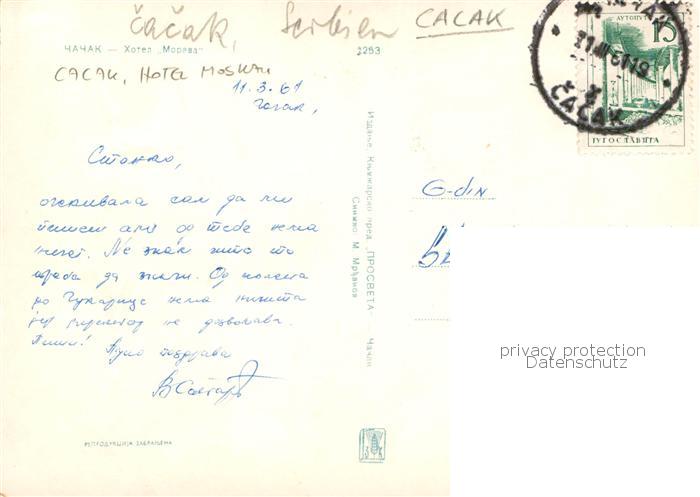 čačak, Serbien CACAK
ЧАЧАК — Хотел „Морава" 2253
CACAK, HOTEL MOSKAU
11.3.61
Чачак,
Станко,
очекивала сам да ми
пишеш али од тебе нема
ништа. Не знам шта то
треба да значи. Од
до Чукарице нема ништа
јер директор не дозвољава.
Пиши! Пуно поздрава
РЕПРОДУКЦИЈА ЗАБРАЊЕНА
Издање: Књижарско пред. „ПРОСВЕТА" — Чачак
Снимио: М. Мрђанов
ČAČAK
АУТОПУТ
15
ЈУГОСЛАВИЈА
G-din
privacy protection
Datenschutz